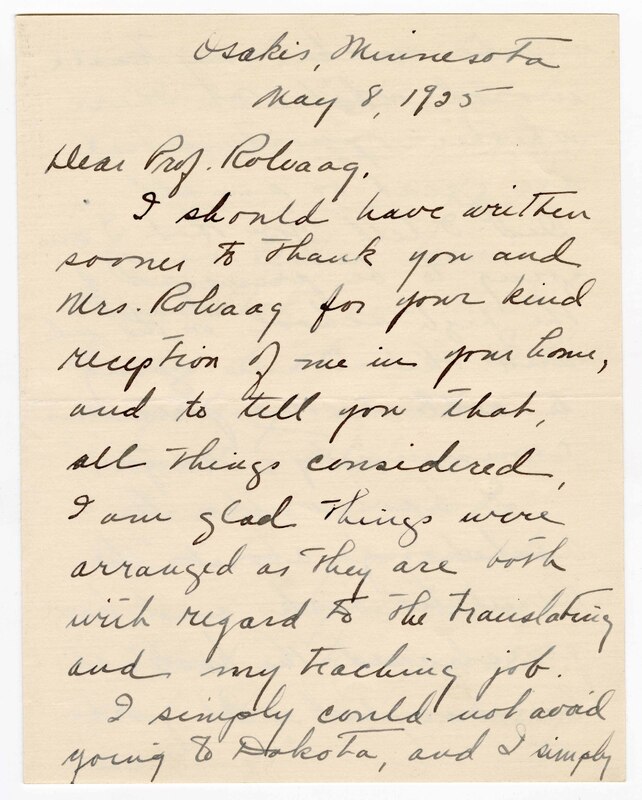 Osakis, Minnesota
May 8, 1925
Dear Prof. Rolvaag,
I should have written
sooner to thank you and
Mrs. Rolvaag for your kind
reception of me in your home,
and to tell you that,
all things considered,
I am glad things were
arranged as they are both
with regard to the translating
and my teaching job.
I simply could not avoid
going to Dakota, and I simply